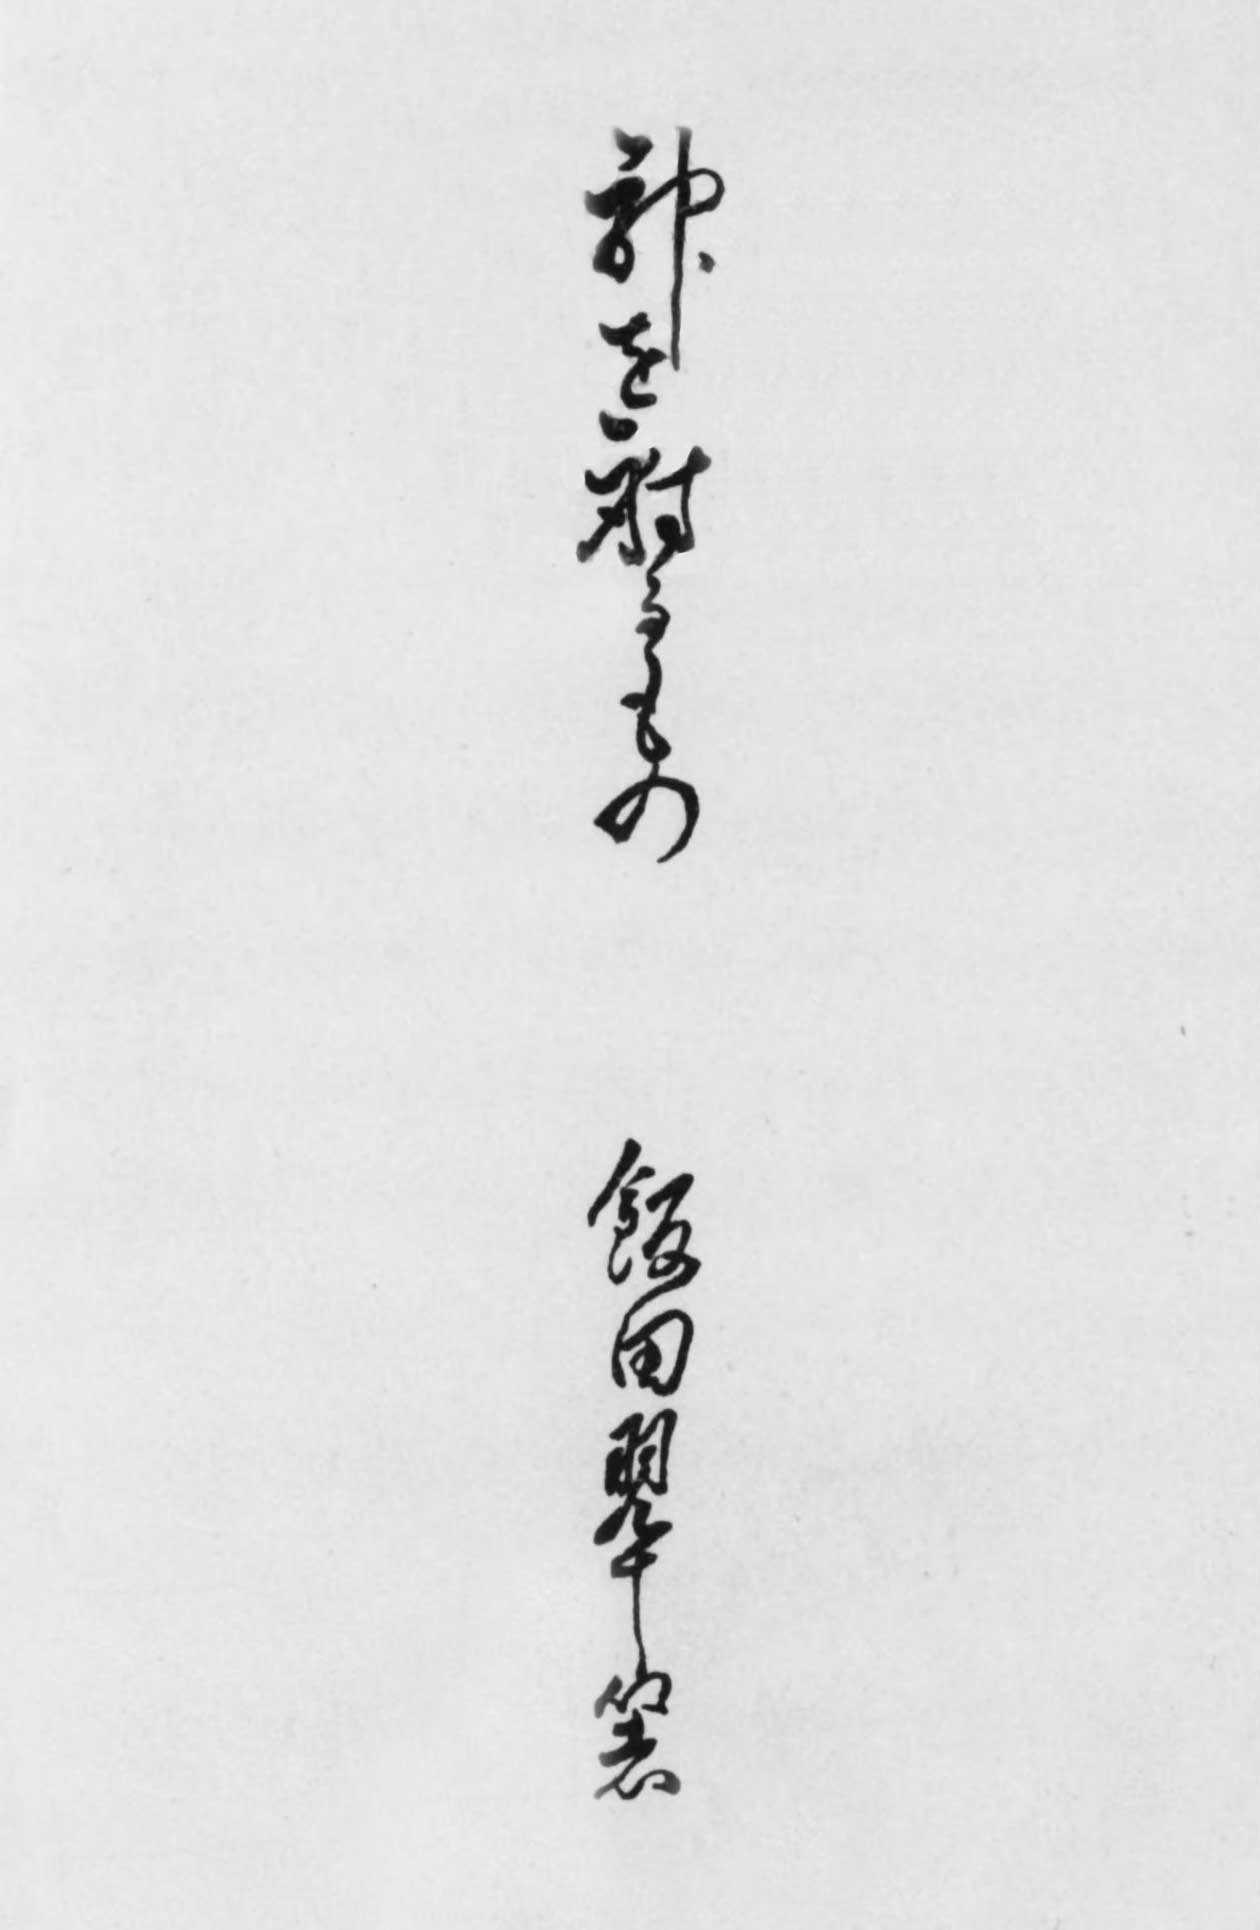 神を射るもの
飯田翠著